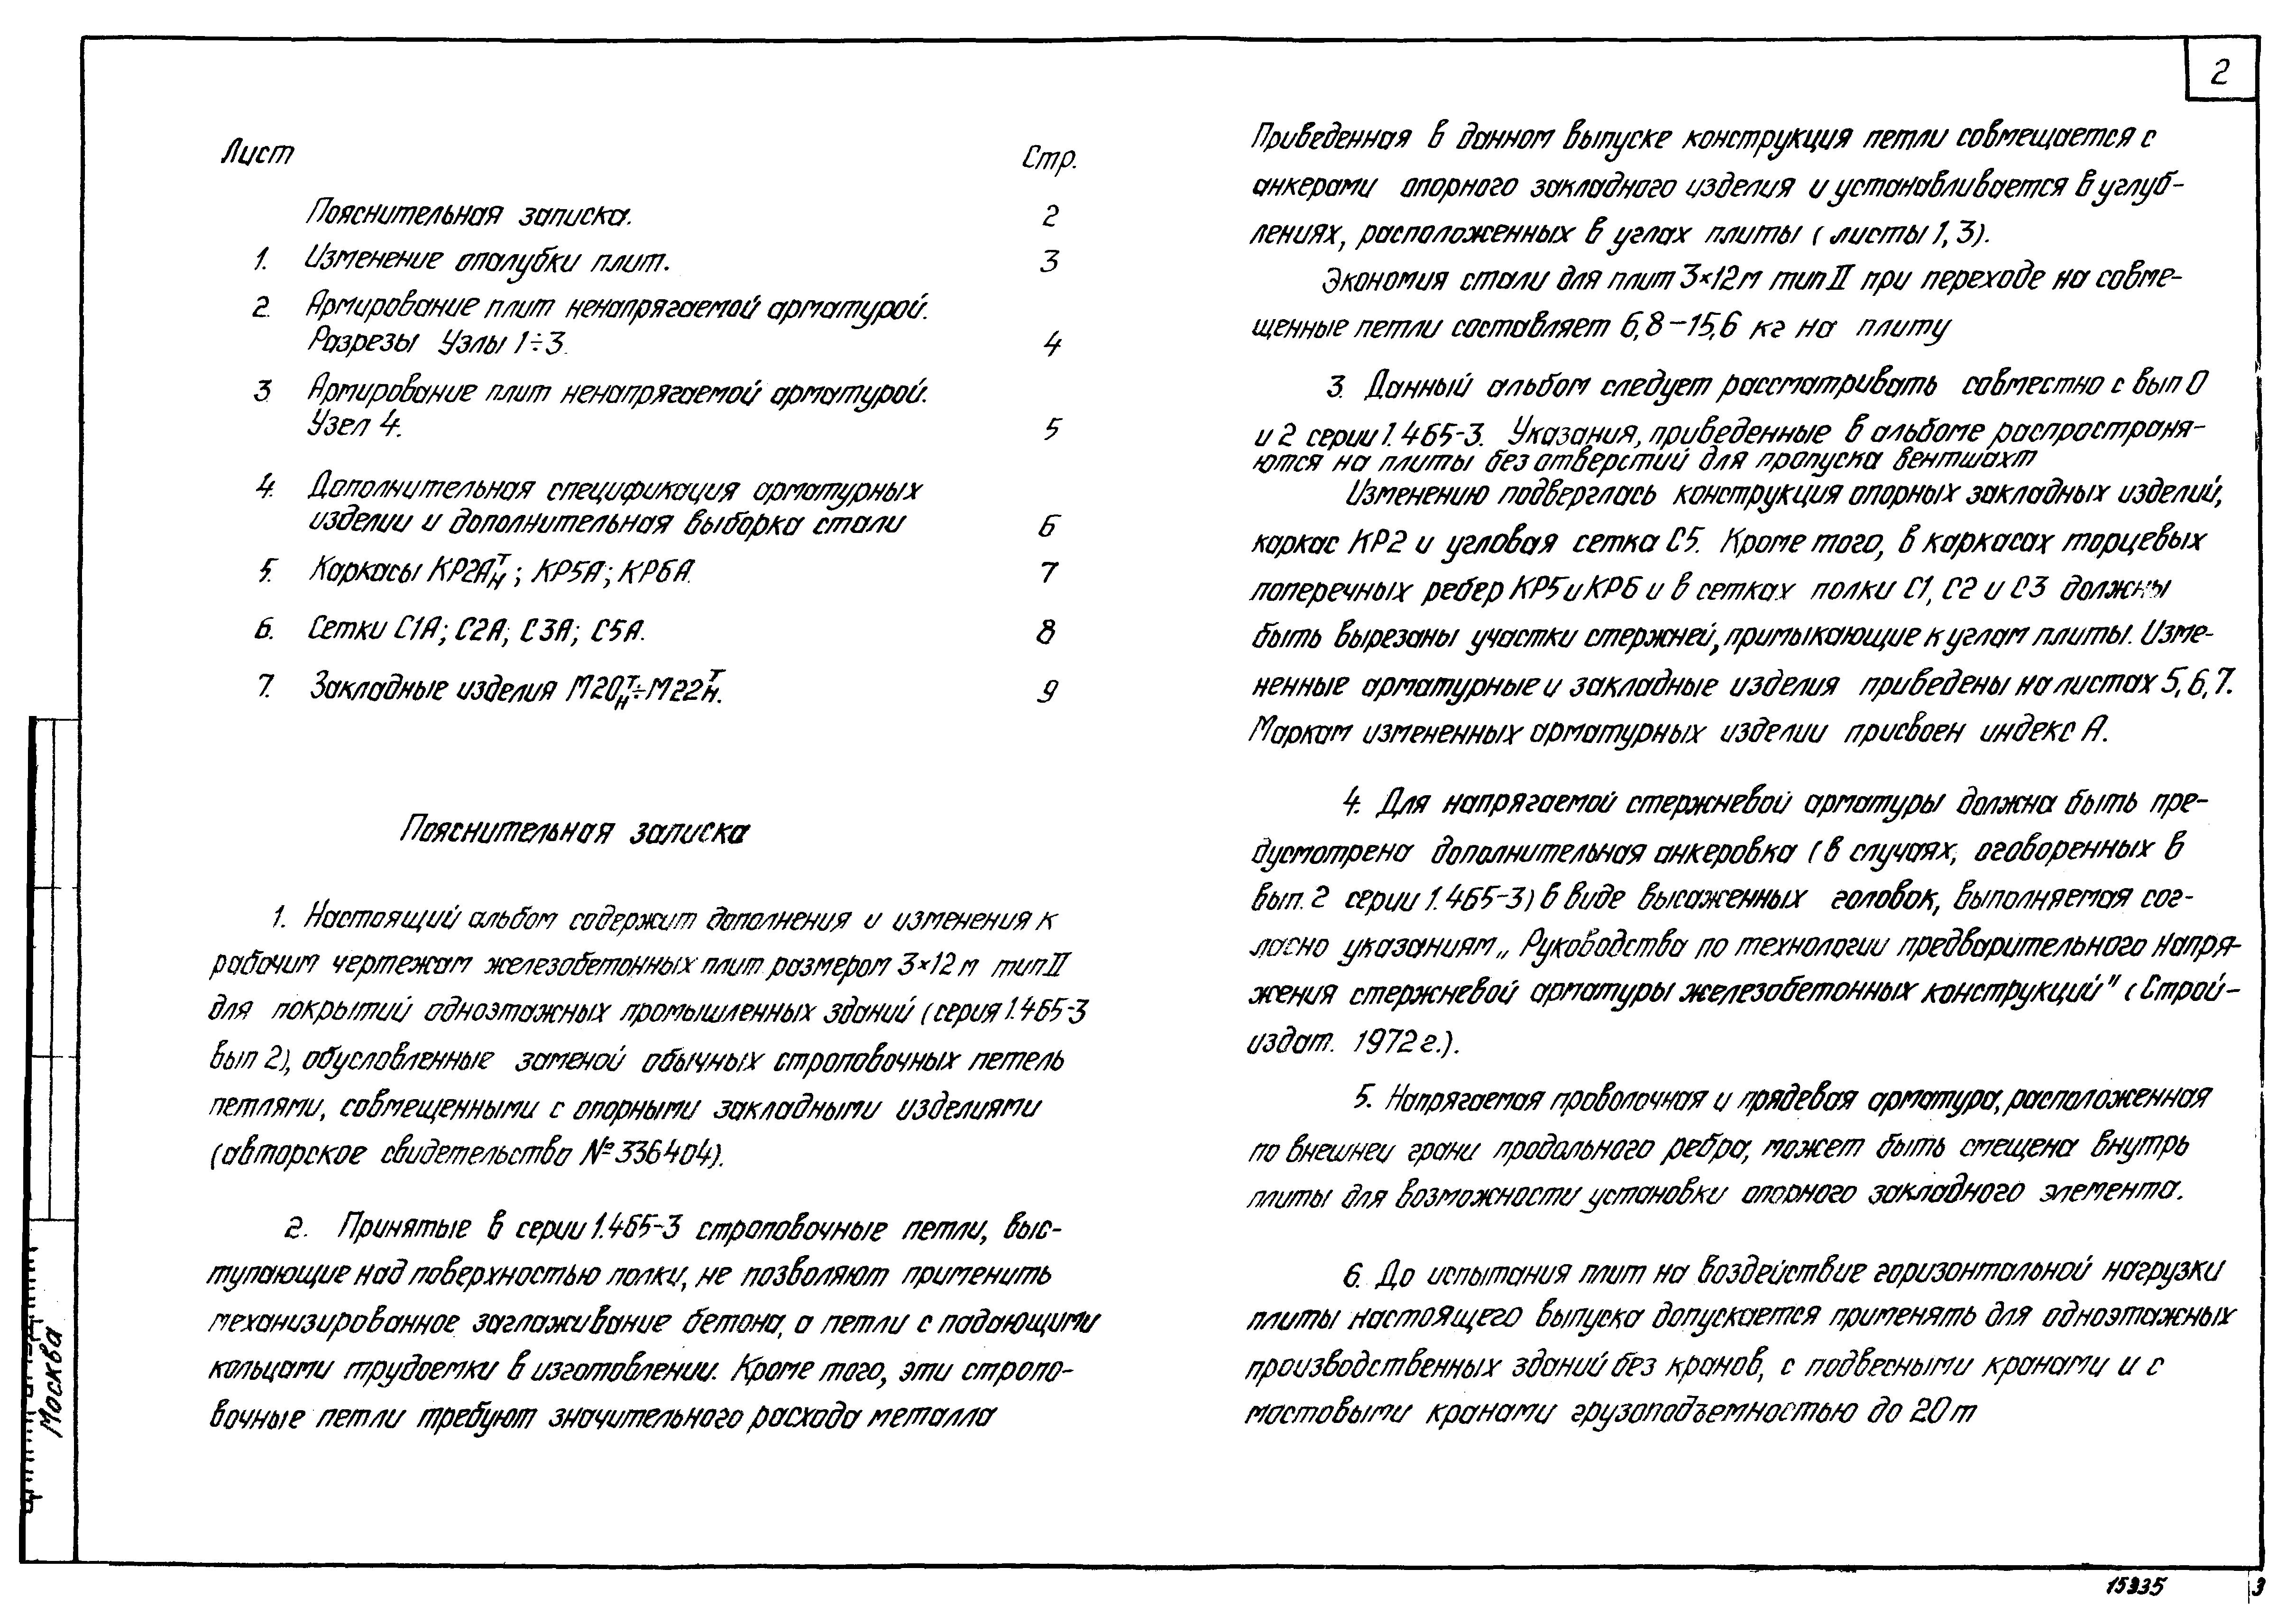 2
Лист Стр.
Пояснительная записка. 2
1. Изменение опалубки плит. 3
2. Армирование плит ненапрягаемой арматурой.
Разрезы Узлы 1÷3. 4
3. Армирование плит ненапрягаемой арматурой.
Узел 4. 5
4. Дополнительная спецификация арматурных
изделии и дополнительная выборка стали 6
5. Каркасы КР2Аᵀн; КР5А; КР6А. 7
6. Сетки С1А; С2А; С3А; С5А. 8
7. Закладные изделия М20ᵀн÷М22ᵀн. 9
Пояснительная записка
1. Настоящий альбом содержит дополнения и изменения к
рабочим чертежам железобетонных плит размером 3×12м тип II
для покрытий одноэтажных промышленных зданий (серия 1.465-3
вып 2), обусловленные заменой обычных строповочных петель
петлями, совмещенными с опорными закладными изделиями
(авторское свидетельство №336404).
2. Принятые в серии 1.465-3 строповочные петли, выс-
тупающие над поверхностью полки, не позволяют применить
механизированное заглаживание бетона, а петли с падающими
кольцами трудоемки в изготовлении. Кроме того, эти стропо-
вочные петли требуют значительного расхода металла
Приведенная в данном выпуске конструкция петли совмещается с
анкерами опорного закладного изделия и устанавливается в углуб-
лениях, расположенных в углах плиты (листы 1, 3).
Экономия стали для плит 3×12м тип II при переходе на совме-
щенные петли составляет 6,8-15,6 кг на плиту
3. Данный альбом следует рассматривать совместно с вып 0
и 2 серии 1.465-3. Указания, приведенные в альбоме распространя-
ются на плиты без отверстий для пропуска вентшахт
Изменению подверглась конструкция опорных закладных изделий,
каркас КР2 и угловая сетка С5. Кроме того, в каркасах торцевых
поперечных ребер КР5 и КР6 и в сетках полки С1, С2 и С3 должны
быть вырезаны участки стержней, примыкающие к углам плиты. Изме-
ненные арматурные и закладные изделия приведены на листах 5, 6, 7.
Маркам измененных арматурных изделии присвоен индекс А.
4. Для напрягаемой стержневой арматуры должна быть пре-
дусмотрена дополнительная анкеровка (в случаях, оговоренных в
вып. 2 серии 1.465-3) в виде высаженных головок, выполняемая сог-
ласно указаниям „Руководства по технологии предварительного напря-
жения стержневой арматуры железобетонных конструкций" (Строй-
издат. 1972г.).
5. Напрягаемая проволочная и прядевая арматура, расположенная
по внешней грани продольного ребра, может быть смещена внутрь
плиты для возможности установки опорного закладного элемента.
6. До испытания плит на воздействие горизонтальной нагрузки
плиты настоящего выпуска допускается применять для одноэтажных
производственных зданий без кранов, с подвесными кранами и с
мостовыми кранами грузоподъемностью до 20т
Москва
15935 3